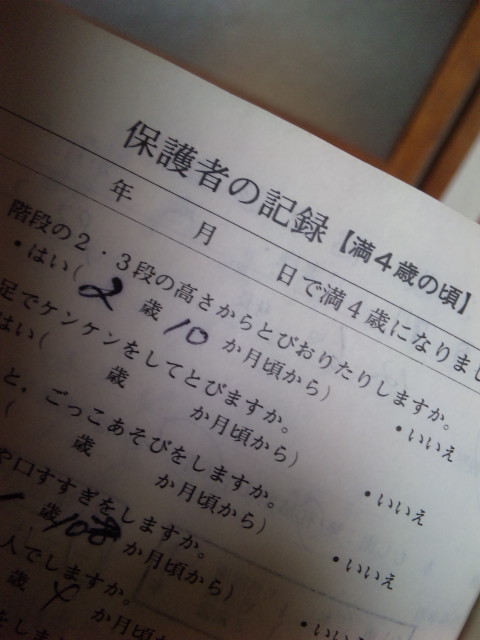 保護者の記録【満4歳の頃】
年 月 日で満4歳になりまし
階段の2・3段の高さからとびおりたりしますか。
・はい(2歳10か月頃から) ・いいえ
足でケンケンをしてとびますか。
はい( 歳 か月頃から) ・いいえ
と，ごっこあそびをしますか。
( 歳 か月頃から) ・いいえ
や口すすぎをしますか。
歳10 か月頃から) ・いいえ
人でしますか。
歳 か月頃から) ・いいえ
をしま